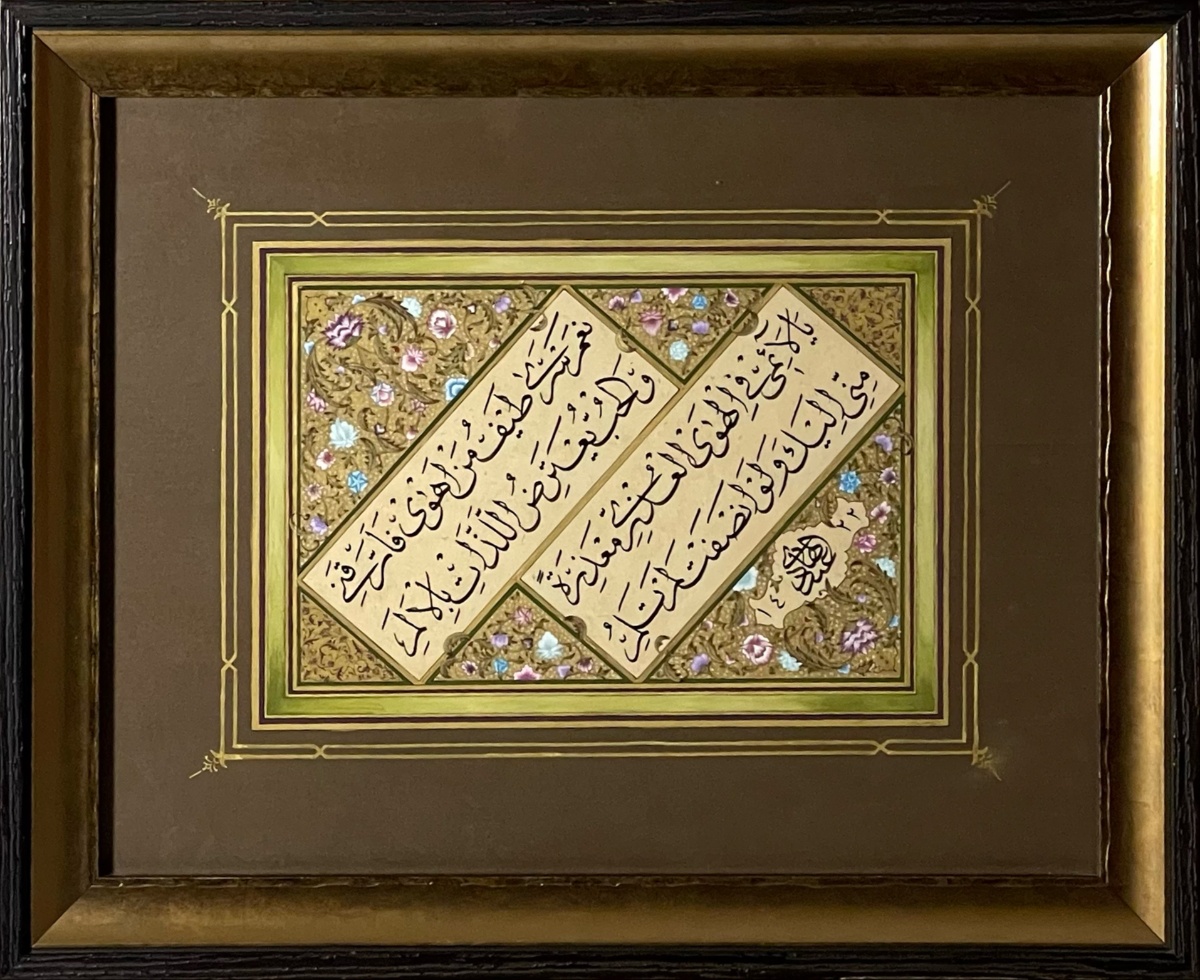 نعم سرى طيف من أهوى فأرقني
والحب يعترض اللذات بالألم
يا لائمي في الهوى العذري معذرة
مني إليك ولو أنصفت لم تلم
١٤٢٢